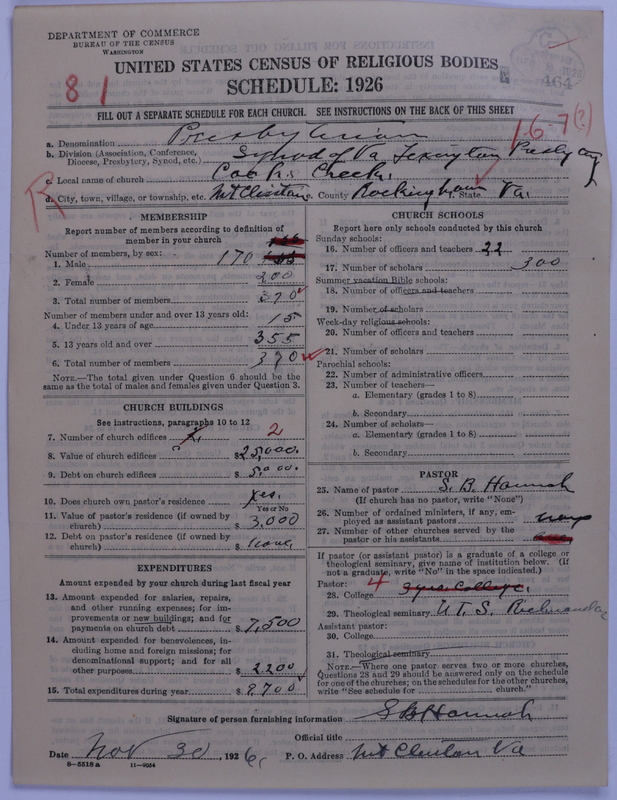 DEPARTMENT OF COMMERCE
BUREAU OF THE CENSUS
WASHINGTON
UNITED STATES CENSUS OF RELIGIOUS BODIES
SCHEDULE: 1926
464
8 1
FILL OUT A SEPARATE SCHEDULE FOR EACH CHURCH. SEE INSTRUCTIONS ON THE BACK OF THIS SHEET
16-7(?)
a. Denomination Presbyterian
b. Division (Association, Conference, Diocese, Presbytery, Synod, etc.) Synod of Va Lexington Presbytery
c. Local name of church Cook's Creek
d. City, town, village, or township, etc. Mt Clinton County Rockingham State Va.
R
MEMBERSHIP
Report number of members according to definition of
member in your church
Number of members, by sex:
1. Male 170
2. Female 200
3. Total number of members 370
Number of members under and over 13 years old:
4. Under 13 years of age 15
5. 13 years old and over 355
6. Total number of members 370
NOTE.—The total given under Question 6 should be
same as the total of males and females given under Question 3.
CHURCH BUILDINGS
See instructions, paragraphs 10 to 12
7. Number of church edifices 2
8. Value of church edifices $25,000.
9. Debt on church edifices $5,000.
10. Does church own pastor's residence yes.
Yes or No
11. Value of pastor's residence (if owned by
church) $3,000
12. Debt on pastor's residence (if owned by
church) $ none
EXPENDITURES
Amount expended by your church during last fiscal year
13. Amount expended for salaries, repairs,
and other running expenses; for im-
provements or new buildings; and for
payments on church debt $7,500
14. Amount expended for benevolences, in-
cluding home and foreign missions; for
denominational support; and for all
other purposes $2200
15. Total expenditures during year $9,700
CHURCH SCHOOLS
Report here only schools conducted by this church
Sunday schools:
16. Number of officers and teachers 22
17. Number of scholars 300
Summer vacation Bible schools:
18. Number of officers and teachers
19. Number of scholars
Week-day religious schools:
20. Number of officers and teachers
21. Number of scholars
Parochial schools:
22. Number of administrative officers
23. Number of teachers—
a. Elementary (grades 1 to 8)
b. Secondary
24. Number of scholars—
a. Elementary (grades 1 to 8)
b. Secondary
PASTOR
25. Name of pastor S. B. Hannah
(If church has no pastor, write "None")
26. Number of ordained ministers, if any, em-
ployed as assistant pastors
27. Number of other churches served by the
pastor or his assistants
If pastor (or assistant pastor) is a graduate of a college or
theological seminary, give name of institution below. (If
not a graduate, write "No" in the space indicated.)
Pastor: 4
28. College
29. Theological seminary U.T.S. Richmond Va
Assistant pastor:
30. College
31. Theological seminary
NOTE.—Where one pastor serves two or more churches,
Questions 28 and 29 should be answered only on the schedule
for one of the churches; on the schedules for the other churches,
write "See schedule for church."
Signature of person furnishing information S B Hannah
Official title
Date Nov 30, 1926 P. O. Address Mt Clinton Va
8-5518 a 11-9554